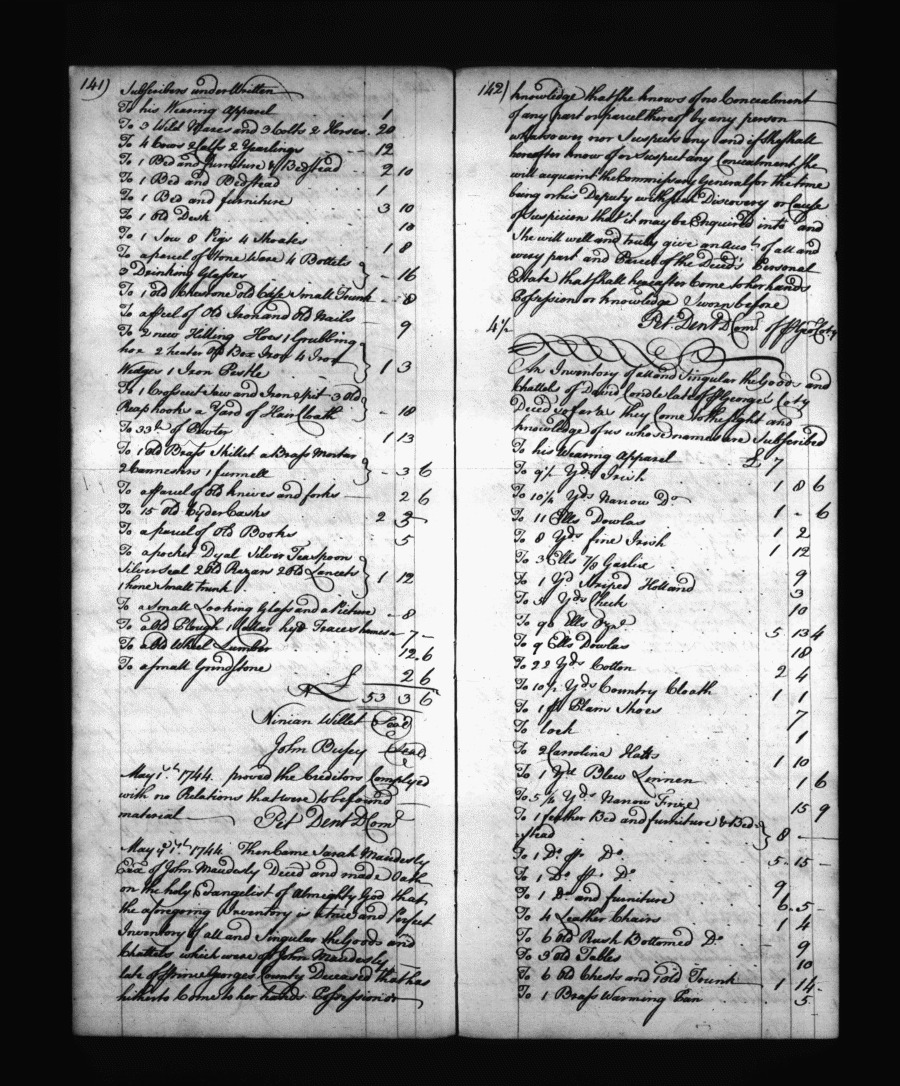 141)
Subscribers underWritten
To his Wearing Apparel 1
To 3 Wild Mares and 3 Colts 2 Horses 20
To 4 Cows 2 Calfs 2 Yearlings 12
To 1 Bed and furniture & Bedstead 2 10
To 1 Bed and Bedstead 1
To 1 Bed and furniture 3 10
To 1 Old Desk 10
To 1 Sow 8 Pigs 4 Shoates 1 8
To a parcel of Stone Ware 4 Bottels
3 Drinking Glasses - 16
To 1 old Chest one old Case & Small Trunk - 8
To a pcel of Old Iron and Old Nails 9
To 2 new Hilling Hoes 1 Grubbing
hoe 2 heater Box Iron 4 Iron
Wedges 1 Iron Pestle 1 3
To 1 Crosscut Saw and Iron Spit 3 Old
Reaphooks a Yard of Hair Cloath - 18
To 33 lb of Pewter 1 13
To 1 Old Brass Skillet a Brass Mortar
2 Cannesters 1 funnell - 3 6
To a parcel of Old knives and forks 2 6
To 15 Old Cyder Casks 2 5
To a parcel of Old Books 5
To a pocket Dyal Silver Teaspoon
Silver Seal 2 Old Razars 2 Old Lancets
1 hone small trunk 1 12
To a Small Looking Glass and a Picture - 8
To a Old Plough 1 Collar Traces hames - 7 -
To a Old Wheel Lumber 12 6
To a small Grindstone 2 6
£ 53 3 6
Ninian Willet (Seal)
John Busey (Seal)
May 1st 1744. proved the Creditors Complyed
with no Relations that were to be found
material Pet Dent D Comry
May 1st 1744. Then Came Sarah Maudesly
Exx of John Maudesly Deced and made Oath
on the holy Evangelist of Almighty God that
the aforegoing Inventory is a true and Perfect
Inventory of all and Singular the Goods and
Chattels which were of John Maudesly
late of Prince Georges County Deceased that has
hitherto Come to her hands Possession or
142)
knowledge that she knows of no Concealment
of any part or parcel thereof by any person
whatsoever nor Suspects any and if she shall
hereafter know of or suspect any Concealment She
will acquaint the Commissary General for the time
being or his Deputy with such Discovery or Cause
of Suspicion that it may be Enquired into and
She will well and truly give an Acco.t of all and
every part and Parcel of the Deced's Personal
Estate that shall hereafter Come to her hands
Possession or knowledge Sworn before
Pet. Dent D Comry of P Geo Coty
An Inventory of all and Singular the Goods and
Chattels of David Condle late of P Georges Coty
Deced so far as they Come to the Sight and
knowledge of us whose names are Subscribed
To his Wearing Apparel £ 7
To 9½ Yds Irish 1 8 6
To 10¼ Yds Narrow Do 1 - 6
To 11 Ells Dowlas 1 2
To 8 Yds fine Irish 1 12
To 3 Ells 7/8 Garlix 9
To 1 Yd Striped Holland 3
To 5 Yds Check 10
To 90 Ells 5 13 4
To 9 Ells Dowlas 18
To 22 Yds Cotton 2 4
To 10½ Yds Country Cloath 1 1
To 1 pr Plain Shoes 7
To lock 1
To 2 Carrolina Hatts 1 10
To 1 Yd Blew Linnen 1 6
To 5¼ Yds Narrow Frize 15 9
To 1 feather Bed and furniture & Bed-
stead 8 -
To 1 Do Do 5 15 -
To 1 Do Do 9
To 1 Do and furniture 6 5 -
To 4 Leather Chairs 1 4
To 6 Old Rush Bottomed Do 9
To 3 old Tables 10
To 6 Old Chests and 1 old Trunk 1 14 -
To 1 Brass Warming Pan 5